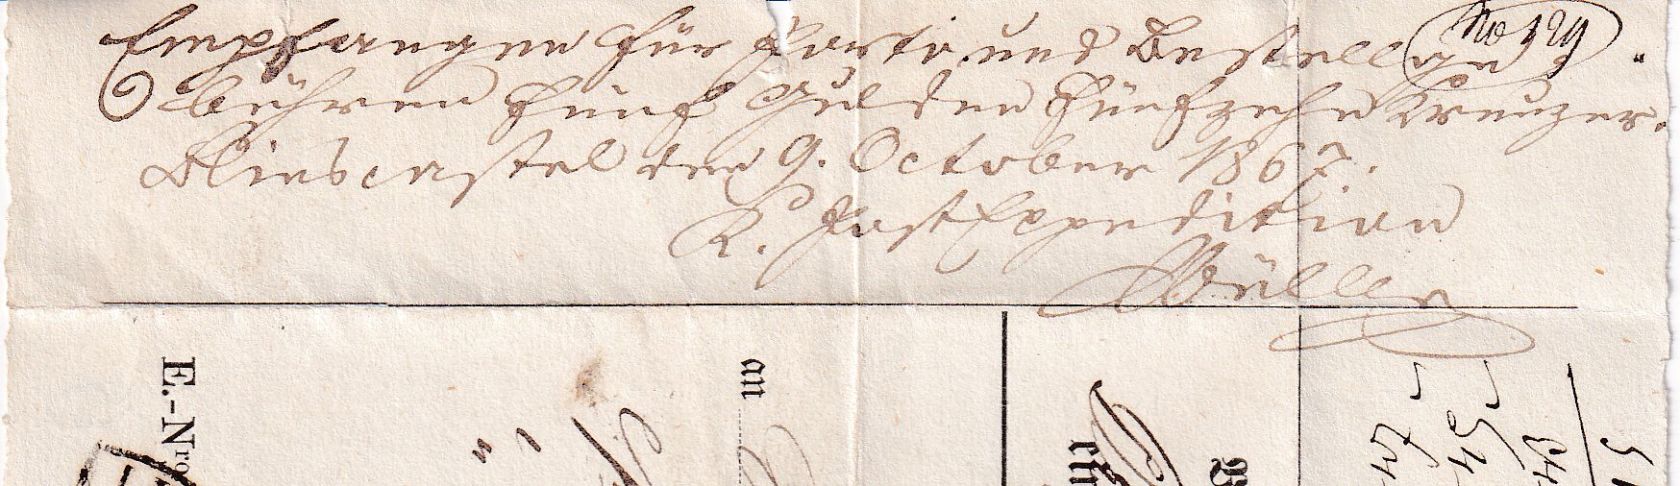 Empfangen für Porto und Bestellge
bühren Fünf Gulden Fünfzehn Kreuzer.
Bliescastel den 9. October 1867.
K. Postexpedition
Müller
No 129
E.-Nro
an